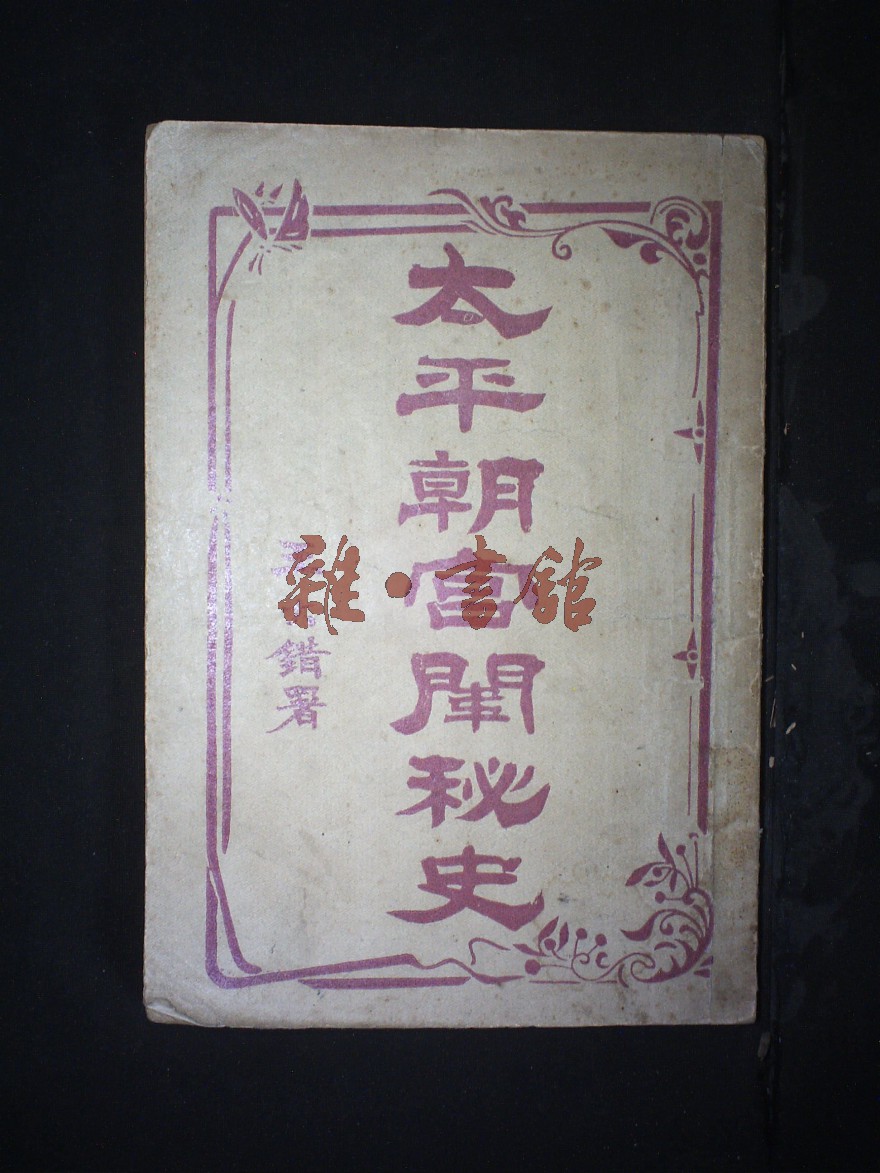 太平朝宮闈秘史
錯署
雜·書館